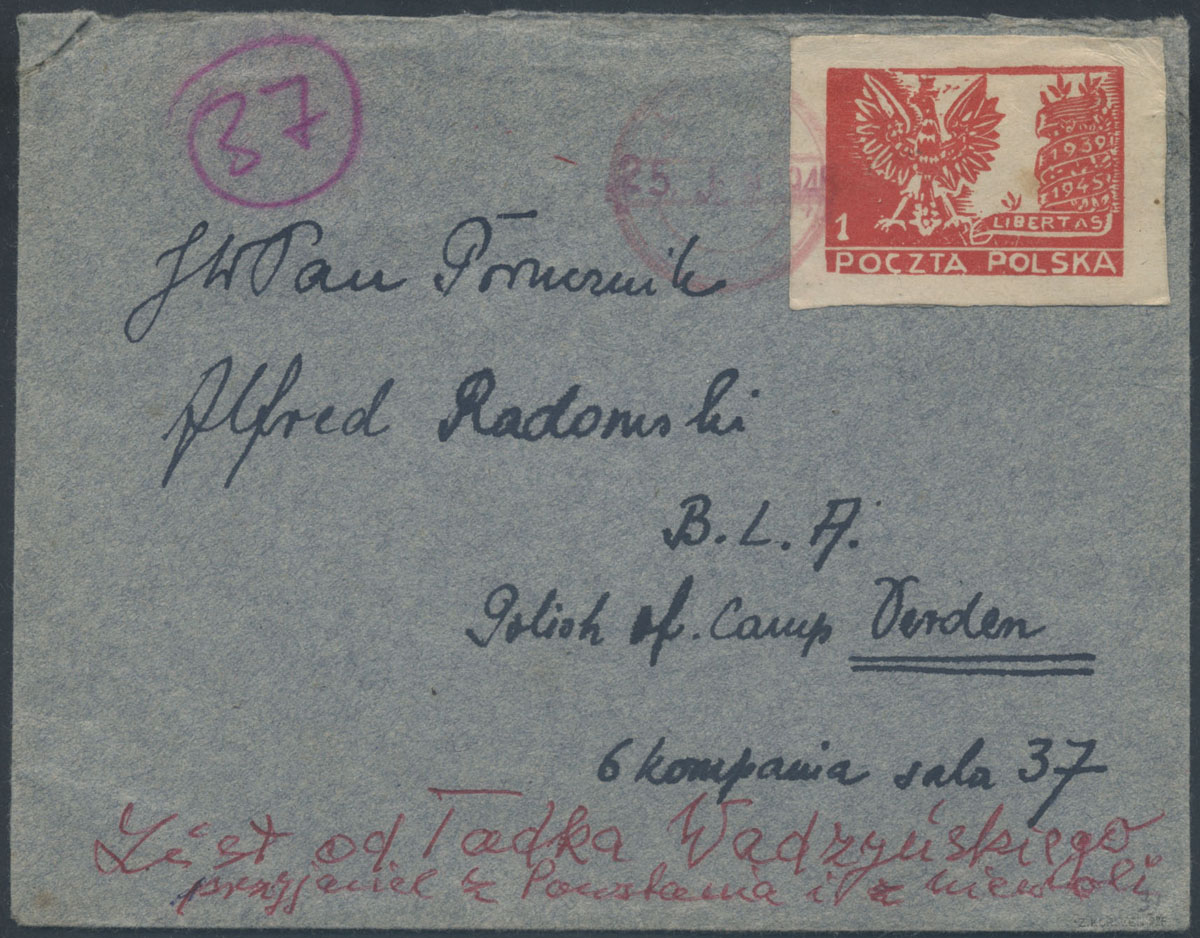 37
25. 194
1939
1945
LIBERTAS
1
POCZTA POLSKA
JW Pan Porucznik
Alfred Radomski
B. L. A.
Polish of. Camp Verden
6 kompania sala 37
List od Tadka Wądzyńskiego
przyjaciel z Powstania i z niewoli